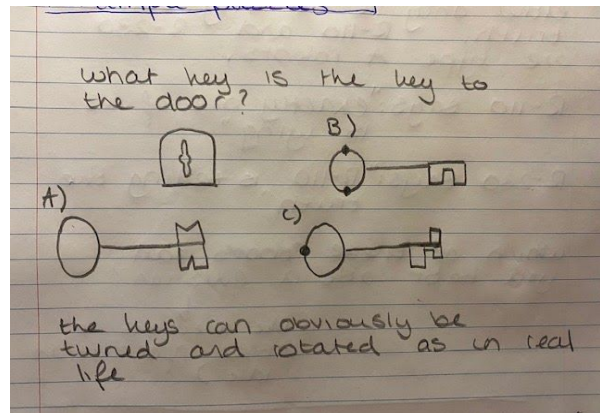 what key is the key to
the door?
B)
A)
C)
the keys can obviously be
turned and rotated as in real
life